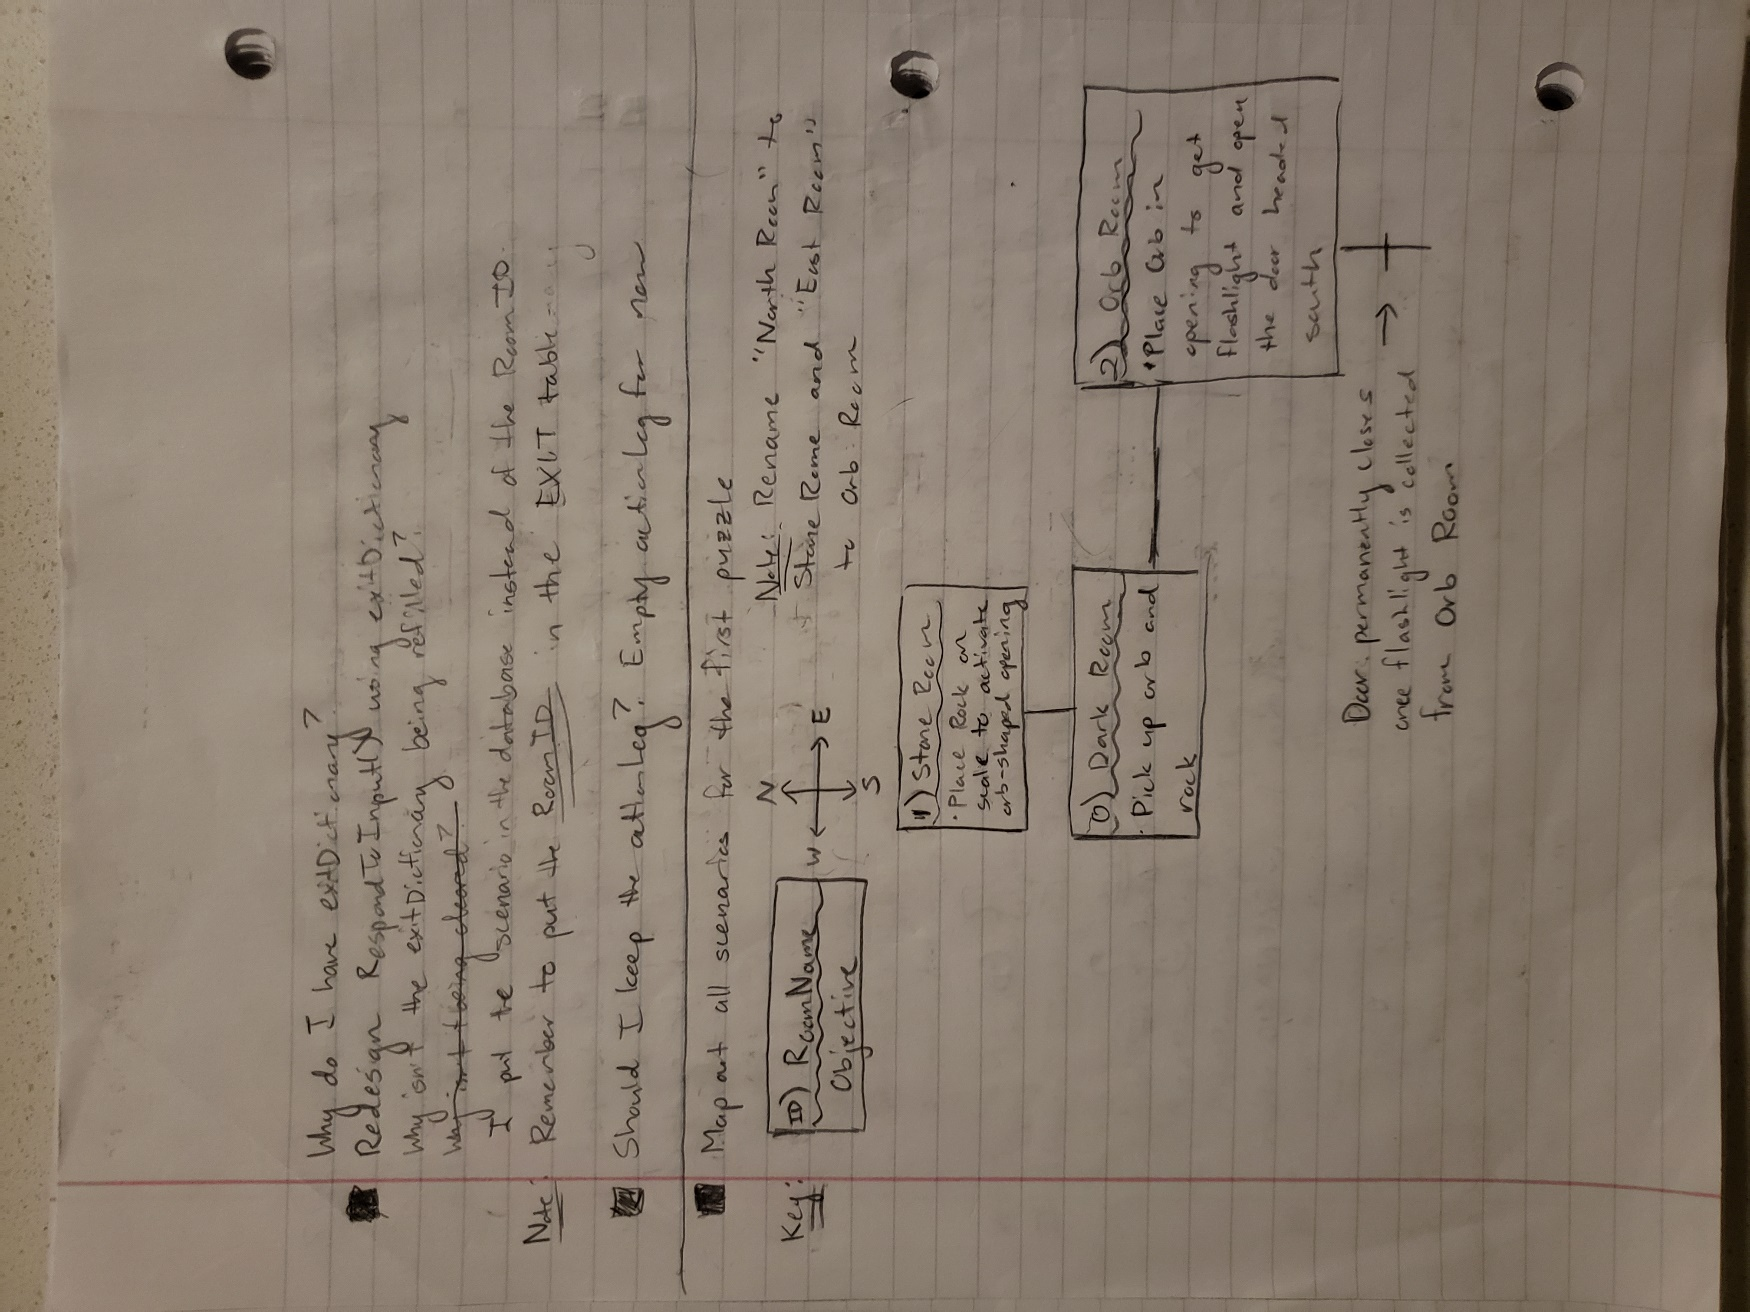 Why do I have exitDictionary?
Redesign RespondToInput() using exitDictionary
Why isn't the exitDictionary being refilled?
Why isn't being cleared?
I put the scenario in the database instead of the RoomID.
Note: Remember to put the RoomID in the EXIT table
Should I keep the actionLog? Empty actionLog for now
Map out all scenarios for the first puzzle
Key:
ID) RoomName
Objective
N
W E
S
Note: Rename "North Room" to
Stone Rome and "East Room"
to Orb Room
1) Stone Room
· Place Rock on
scale to activate
orb-shaped opening
0) Dark Room
· Pick up orb and
rock
2) Orb Room
· Place Orb in
opening to get
flashlight and open
the door headed
south
Door permanently closes
once flashlight is collected
from Orb Room